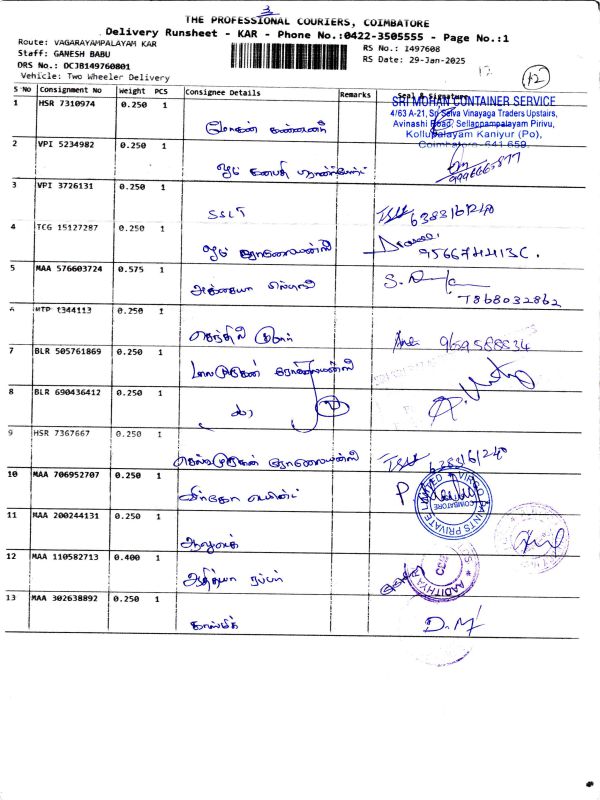 3
THE PROFESSIONAL COURIERS, COIMBATORE
Delivery Runsheet - KAR - Phone No.:0422-3505555 - Page No.:1
Route: VAGARAYAMPALAYAM KAR
RS No.: I497608
Staff: GANESH BABU
RS Date: 29-Jan-2025
DRS No.: OCJB149760801
Vehicle: Two Wheeler Delivery
12
12
S No Consignment No Weight PCS Consignee Details Remarks Seal & Signature
1 HSR 7310974 0.250 1
SRI MOHAN CONTAINER SERVICE
4/63 A-21, Sri Selva Vinayaga Traders Upstairs,
Avinashi Road, Sellappampalayam Pirivu,
Kollupalayam Kaniyur (Po),
Coimbatore - 641 659.
2 VPI 5234982 0.250 1
ஓம்
3 VPI 3726131 0.250 1
SSLT
6383161240
4 TCG 15127287 0.250 1
ஓம்
9566744413C.
5 MAA 576603724 0.575 1
7868032862
MTP 1344113 0.250 1
செந்தில் குமார்
9659588834
7 BLR 505761869 0.250 1
பாலமுருகன்
8 BLR 690436412 0.250 1
9 HSR 7367667 0.250 1
செல்வமுருகன்
6383161240
10 MAA 706952707 0.250 1
விர்கோ பெயிண்ட்
VIRGO PAINTS PRIVATE LIMITED
COIMBATORE
11 MAA 200244131 0.250 1
12 MAA 110582713 0.400 1
ஆதித்யா ரப்பர்
AADITHYA
CBE
13 MAA 302638892 0.250 1
காஸ்மிக்
D.M